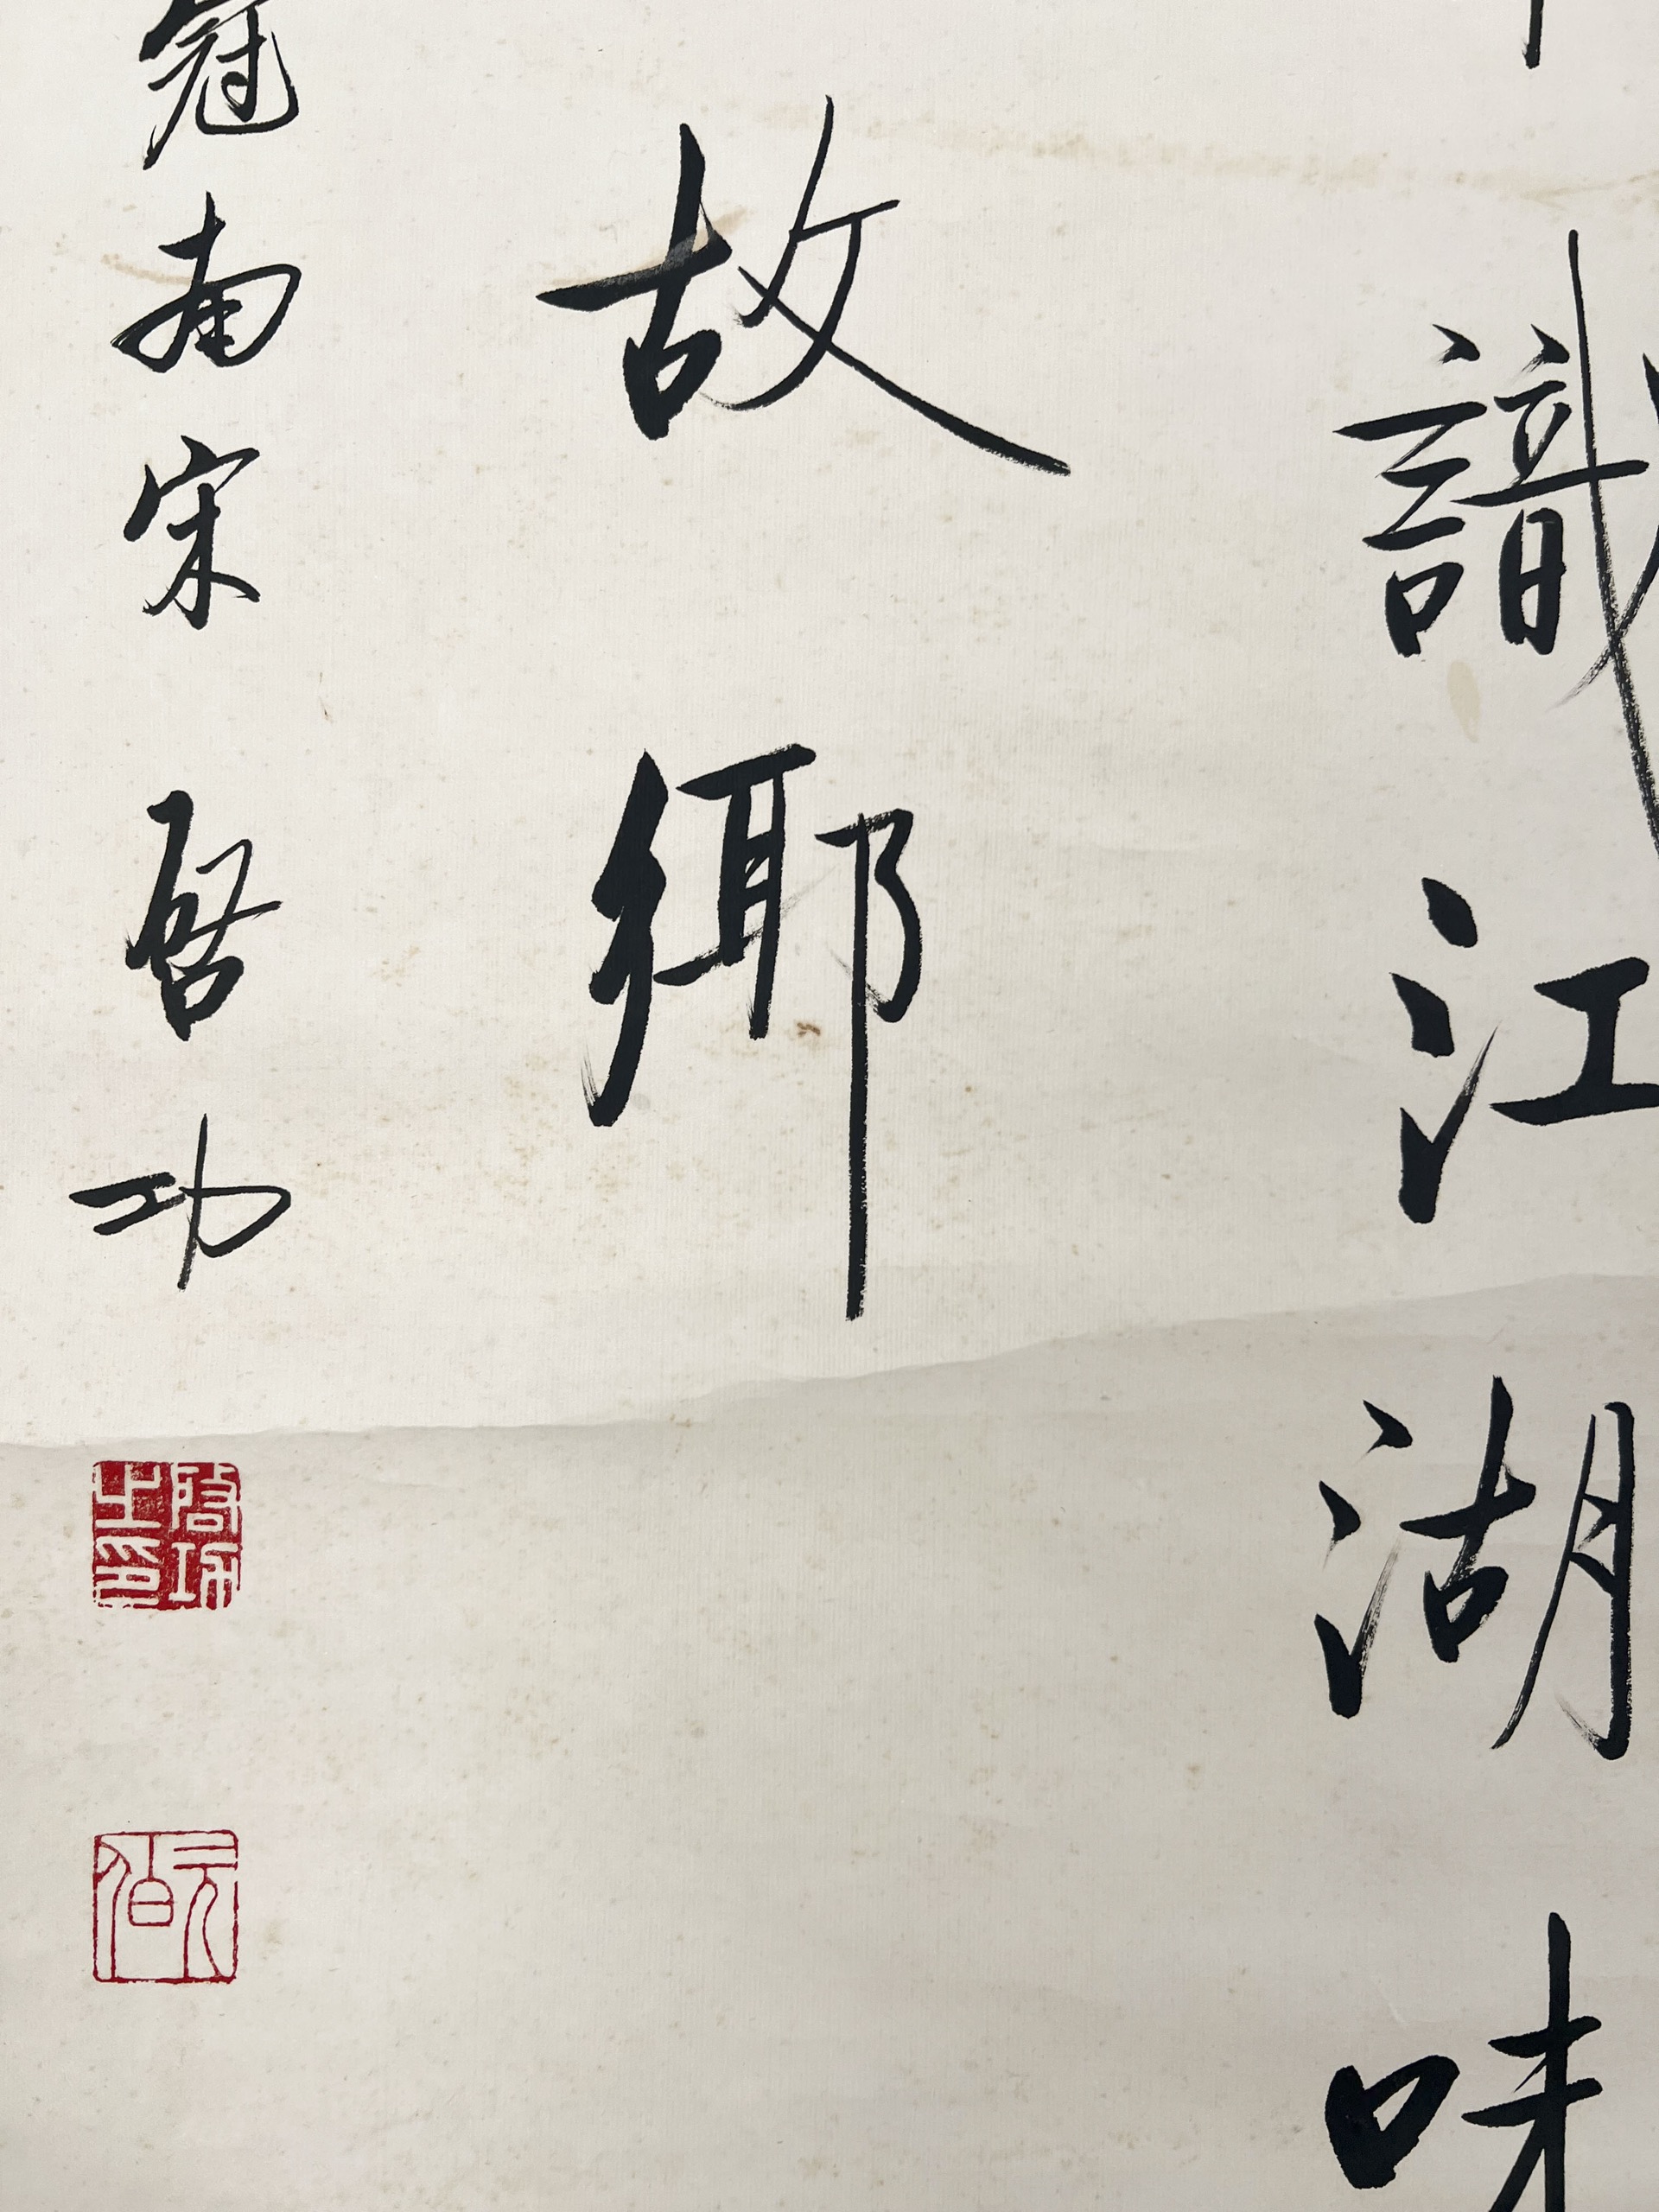 識江湖味
故鄉
冠南宋 啓功
啓功之印
元白